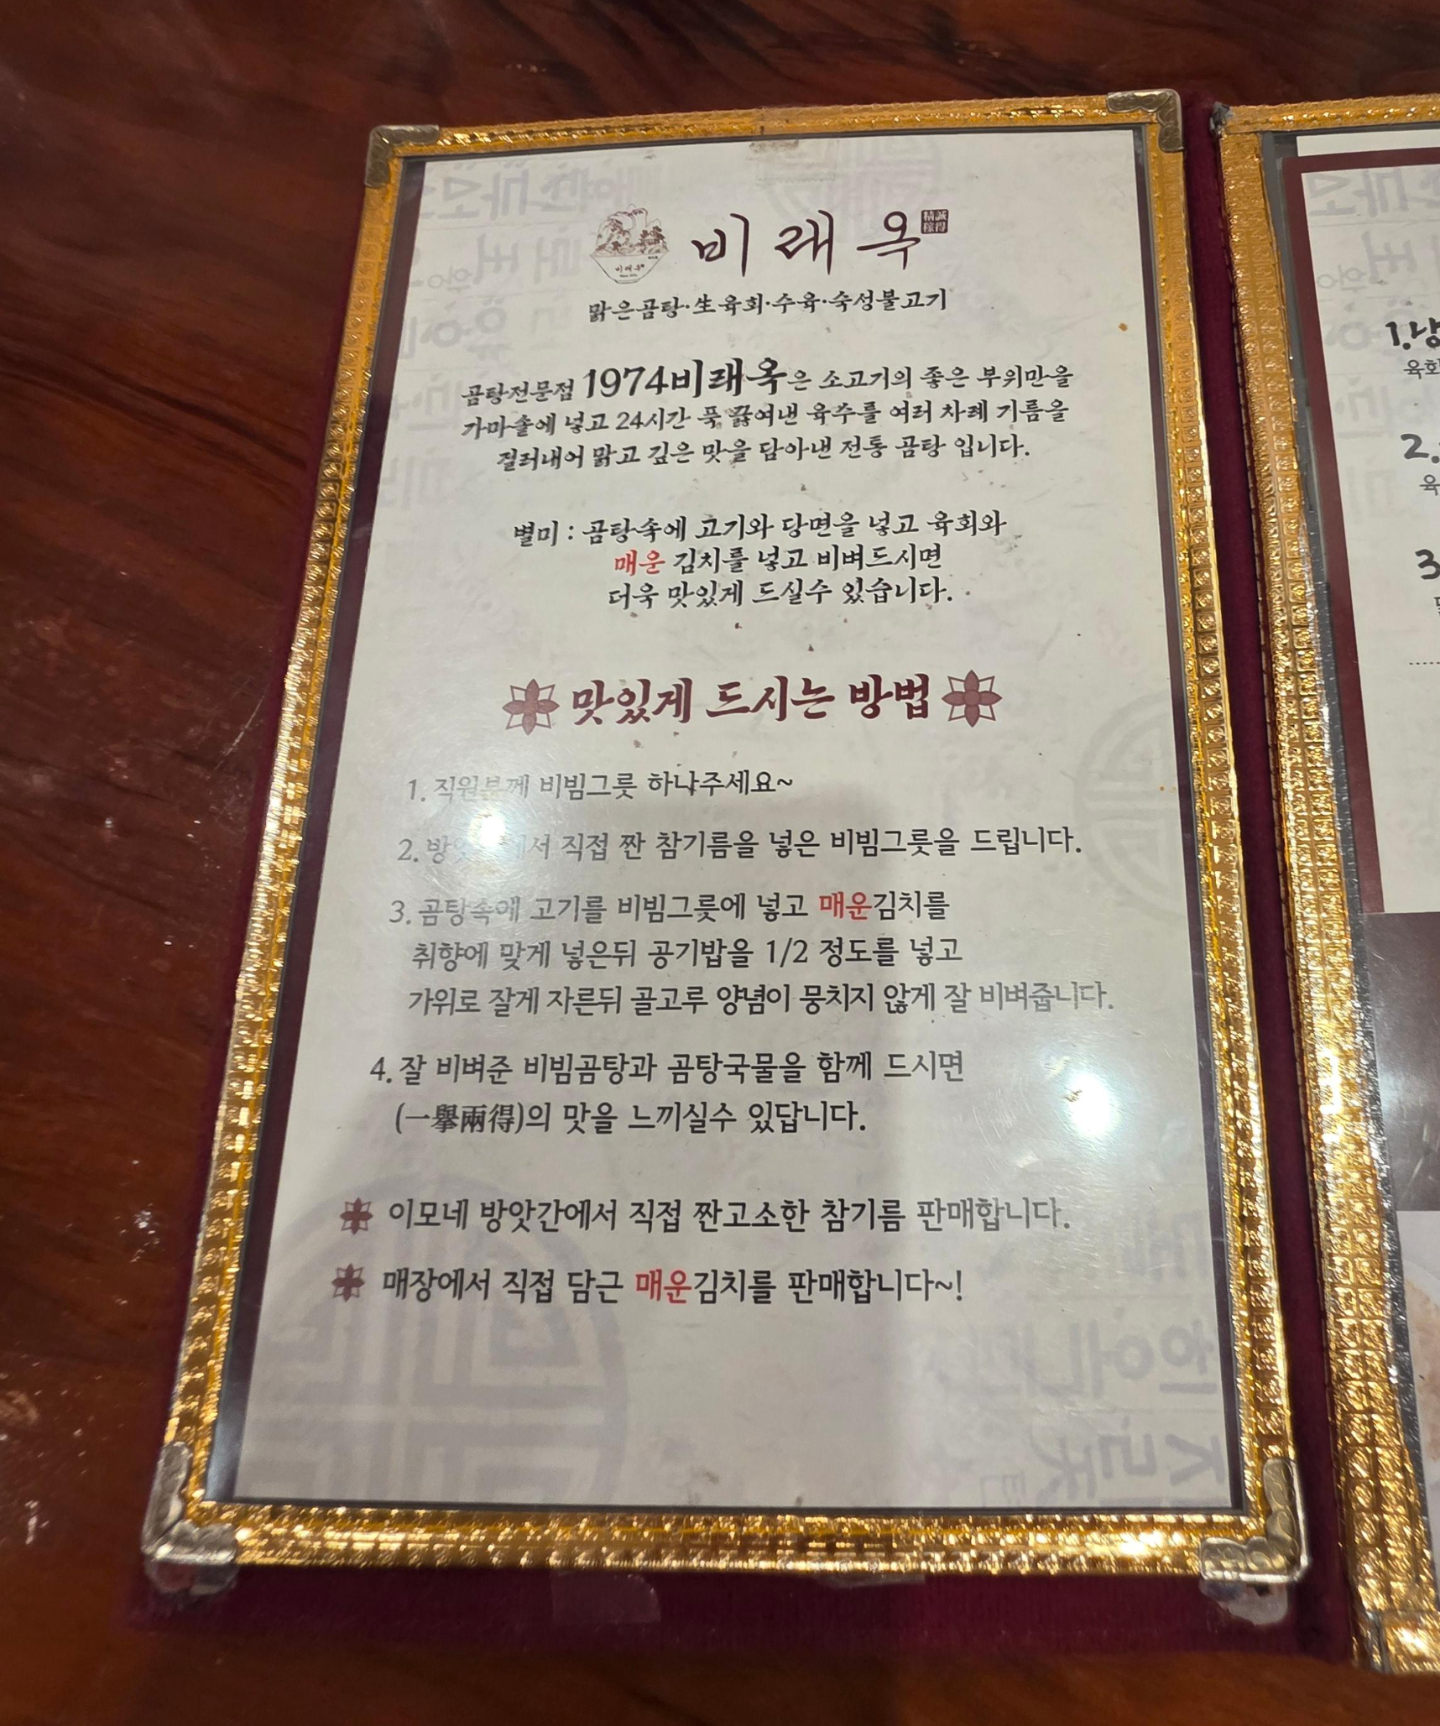 비래옥
精誠
비래옥
맑은곰탕·生육회·수육·숙성불고기
곰탕전문점 1974비래옥은 소고기의 좋은 부위만을
가마솥에 넣고 24시간 푹 끓여낸 육수를 여러 차례 기름을
걸러내어 맑고 깊은 맛을 담아낸 전통 곰탕 입니다.
별미 : 곰탕속에 고기와 당면을 넣고 육회와
매운 김치를 넣고 비벼드시면
더욱 맛있게 드실수 있습니다.
맛있게 드시는 방법
1. 직원분께 비빔그릇 하나주세요~
2. 직접 짠 참기름을 넣은 비빔그릇을 드립니다.
3. 곰탕속에 고기를 비빔그릇에 넣고 매운김치를
취향에 맞게 넣은뒤 공기밥을 1/2 정도를 넣고
가위로 잘게 자른뒤 골고루 양념이 뭉치지 않게 잘 비벼줍니다.
4. 잘 비벼준 비빔곰탕과 곰탕국물을 함께 드시면
(一擧兩得)의 맛을 느끼실수 있답니다.
이모네 방앗간에서 직접 짠고소한 참기름 판매합니다.
매장에서 직접 담근 매운김치를 판매합니다~!
1.
2.
3